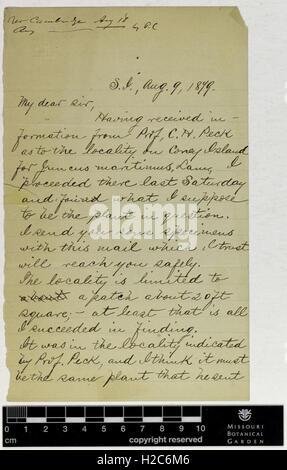 Aug 18
S.I., Aug. 9, 1879.
My dear Sir,
Having received in-
formation from Prof. C. H. Peck
as to the locality on Coney Island
for Juncus maritimus, Lam., I
proceeded there last Saturday
and found what I suppose
to be the plant in question.
I send you some specimens
with this mail which I trust
will reach you safely.
The locality is limited to
about a patch about 20 ft
square, – at least that is all
I succeeded in finding.
It was in the locality indicated
by Prof. Peck, and I think it must
be the same plant that he sent
alamy
0 1 2 3 4 5 6 7 8 9 10
cm
copyright reserved
MISSOURI
BOTANICAL
GARDEN
alamy
Image ID: H2C6M6
www.alamy.com